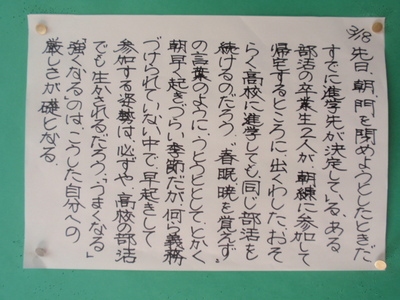 3/18 先日、朝、門を閉めようとしたときだ
すでに進学先が決定している、ある
部活の卒業生2人が、朝練に参加して
帰宅するところに出くわした。おそ
らく高校に進学しても、同じ部活を
続けるのだろう。"春眠暁を覚えず"
の言葉のように、うとうととして、とかく
朝早く起きづらい季節だが、何ら義務
づけられていない中で早起きして
参加する姿勢は、必ずや、高校の部活
でも生かされるだろう。「うまくなる」
「強くなる」のは、こうした自分への
厳しさが礎となる